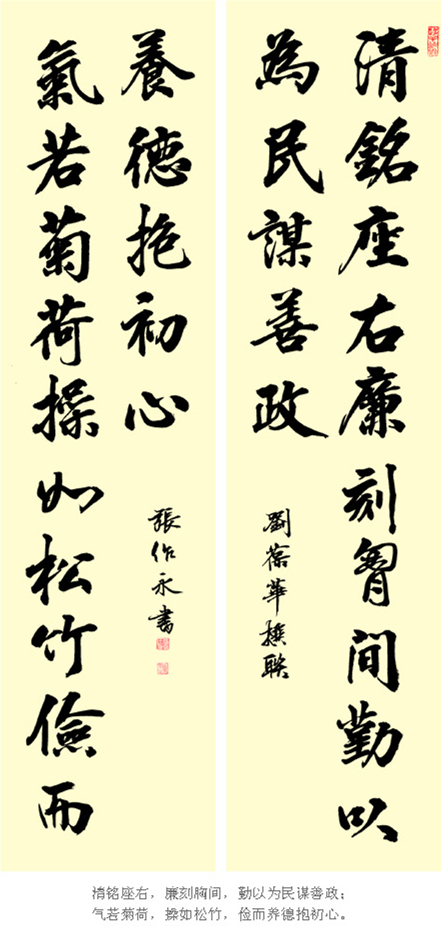 清銘座右廉刻胷間勤以
為民謀善政
劉葆華撰聯
氣若菊荷操如松竹儉而
養德抱初心
張作永書
清铭座右，廉刻胸间，勤以为民谋善政；
气若菊荷，操如松竹，俭而养德抱初心。